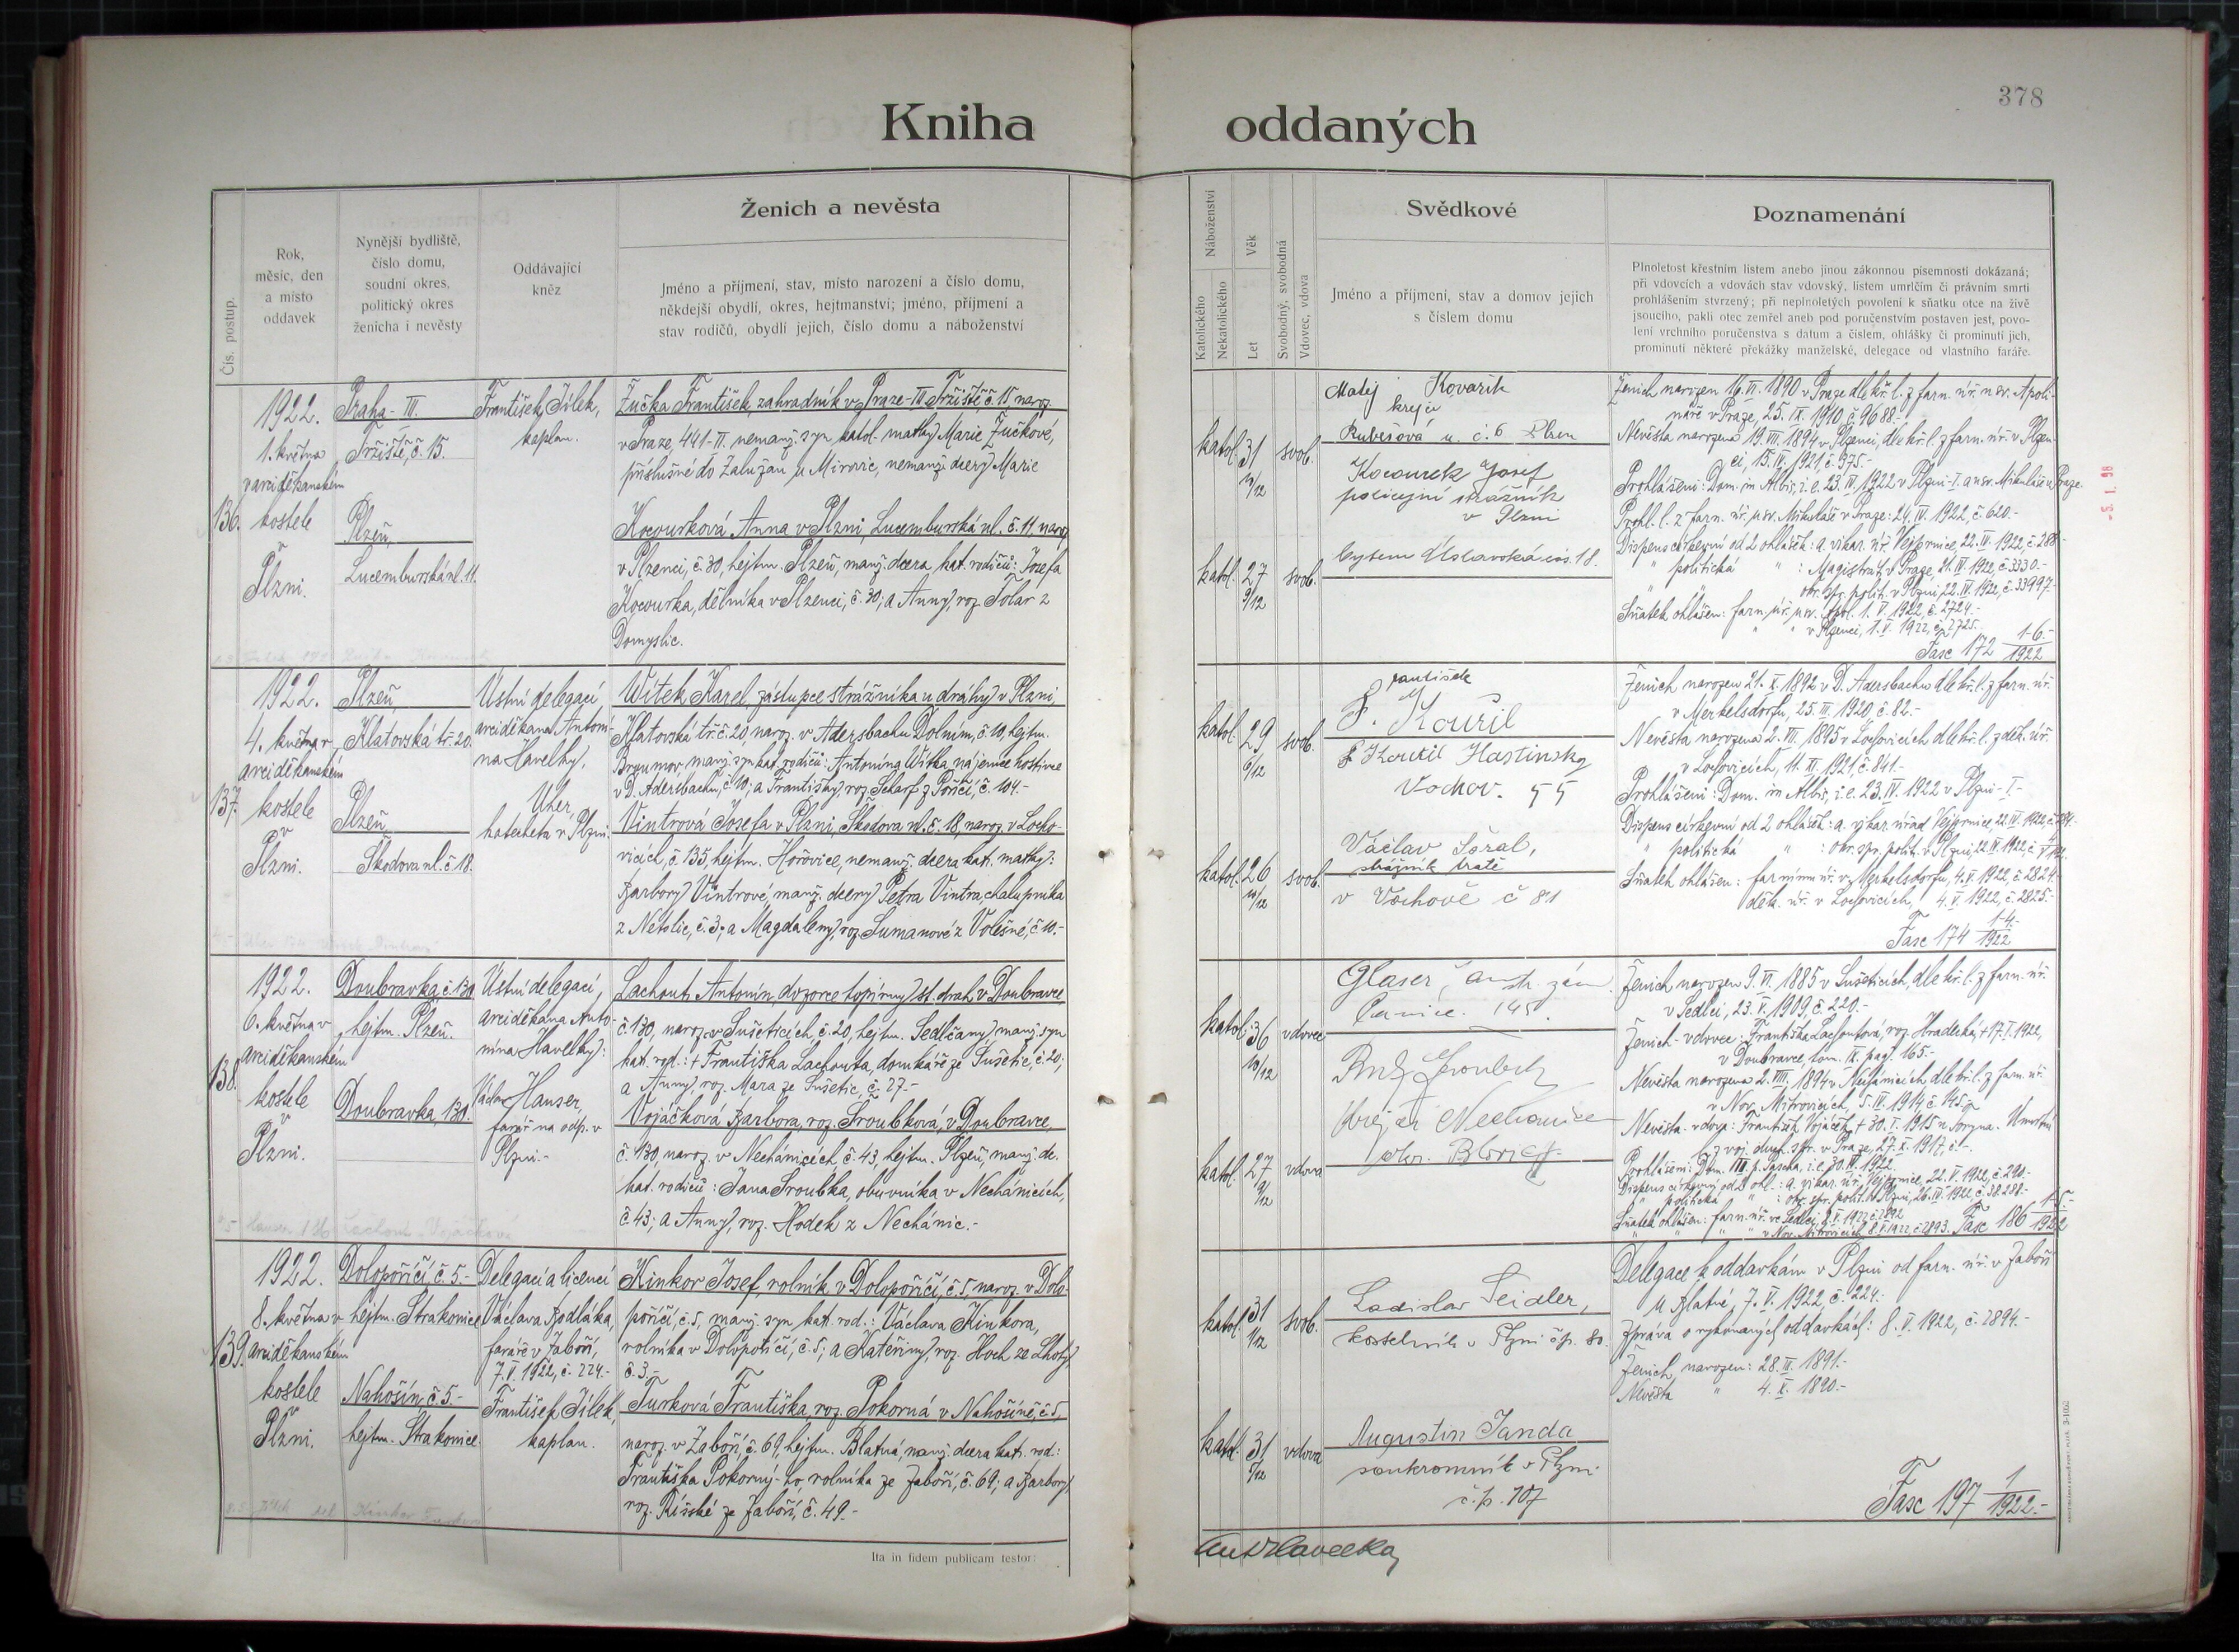 378
Kniha oddaných
Čís. postup.
Rok,
měsíc, den
a místo
oddavek
Nynější bydliště,
číslo domu,
soudní okres,
politický okres
ženicha i nevěsty
Oddávající
kněz
Ženich a nevěsta
Jméno a příjmení, stav, místo narození a číslo domu,
někdejší obydlí, okres, hejtmanství; jméno, příjmení a
stav rodičů, obydlí jejich, číslo domu a náboženství
Náboženství
Katolického
Nekatolického
Věk
Let
Svobodný, svobodná
Vdovec, vdova
Svědkové
Jméno a příjmení, stav a domov jejich
s číslem domu
Poznamenání
Plnoletost křestním listem anebo jinou zákonnou písemností dokázaná;
při vdovcích a vdovách stav vdovský, listem umrlčím či právním smrti
prohlášením stvrzený; při neplnoletých povolení k sňatku otce na živě
jsoucího, pakli otec zemřel aneb pod poručenstvím postaven jest, povo-
lení vrchního poručenstva s datum a číslem, ohlášky či prominutí jich,
prominutí některé překážky manželské, delegace od vlastního faráře.
136.
1922.
1. května
v arciděkanském
kostele
v
Plzni.
Praha-III.
Tržiště, č. 15.
Plzeň,
Lucemburská ul. 11.
František Jílek,
kaplan.
Žučka František, zahradník v Praze-III Tržiště, č. 15, naroz.
v Praze, 441-II. nemanž. syn katol. matky Marie Žučkové,
příslušné do Zalužan u Mirovic, nemanž. dcery Marie
Kocourková Anna v Plzni, Lucemburská ul. č. 11, naroz.
v Plzenci, č. 30, hejtm. Plzeň, manž. dcera kat. rodičů: Josefa
Kocourka, dělníka v Plzenci, č. 30; a Anny, roz. Tolar z
Domyslic.
katol. 31 10/12 svob.
katol. 27 9/12 svob.
Matěj Kovařík
krejčí
Rubešová u. č. 6 Plzen
Kocourek Josef
policejní strážník
v Plzni
bytem Úslavská čís. 18.
Ženich narozen 16. VI. 1890 v Praze dle kř. l. z farn. úř. u sv. Apoli-
náře v Praze, 25. IX. 1910, č. 9688.-
Nevěsta narozena 19. VII. 1894 v Plzenci, dle kř. l. z farn. úř. v Plzen-
ci, 15. IV. 1921, č. 375.-
Prohlášeni: Dom. in Albis, i. e. 23. IV. 1922 v Plzni-I. a u sv. Mikuláše v Praze.
Prohl. l. z farn. úř. u sv. Mikuláše v Praze: 24. IV. 1922, č. 620.-
Dispens církevní od 2 ohlášek: a. vikar. úř. Vejprnice, 22. IV. 1922, č. 288.-
" politická " : Magistrát v Praze, 21. IV. 1922, č. 3330.-
" " okr. spr. polit. v Plzni, 22. IV. 1922, č. 33997.-
Sňatek ohlášen: farn. úř. u sv. Apol. 1. V. 1922, č. 2724.-
" " v Plzenci, 1. V. 1922, č. 2725.-
Fasc 172 1-6.-/1922
137.
1922.
4. května v
arciděkanském
kostele
v
Plzni.
Plzeň,
Klatovská tř. 20.
Plzeň
Škodova ul. č. 18.
Ústní delegací
arciděkana Antoní-
na Havelky,
Uher,
katecheta v Plzni.
Witek Karel, zástupce strážníka u dráhy v Plzni,
Klatovská tř. č. 20, naroz. v Adersbachu Dolním, č. 10, hejtm.
Broumov, manž. syn kat. rodičů: Antonína Witka, nájemce hostince
v D. Adersbachu, č. 10; a Františky, roz. Scharf z Poříčí, č. 104.-
Vintrová Josefa v Plzni, Škodova ul. č. 18, naroz. v Locho-
vicích, č. 135, hejtm. Hořovice, nemanž. dcera kat. matky:
Barbory Vintrové, manž. dcery Petra Vintra, chalupníka
z Netolic, č. 3; a Magdaleny, roz. Šumanové z Volešné, č. 10.-
katol. 29 6/12 svob.
katol. 26 10/12 svob.
František
F. Kouřil
Vochov. 55
Václav Šoral,
strážník tratě
v Vochově č 81
Ženich narozen 21. X. 1892 v D. Adersbachu dle kř. l. z farn. úř.
v Merkelsdorfu, 25. III. 1920, č. 82.-
Nevěsta narozena 2. VII. 1895 v Lochovicích dle kř. l. z děk. úř.
v Lochovicích, 11. XI. 1921, č. 841.-
Prohlášeni: Dom. in Albis, i. e. 23. IV. 1922 v Plzni-I-
Dispens církevní od 2 ohlášek: a. vikar. úřad Vejprnice, 22. IV. 1922, č. 284.
" politická " : okr. spr. polit. v Plzni, 22. IV. 1922, č.
Sňatek ohlášen: farnímu úř. v Merkelsdorfu, 4. V. 1922, č. 2824.-
děk. úř. v Lochovicích, 4. V. 1922, č. 2825.-
Fasc 174 1-4.-/1922
138.
1922.
6. května v
arciděkanském
kostele
v
Plzni.
Doubravka, č. 130
hejtm. Plzeň.
Doubravka, 130.
Ústní delegací,
arciděkana Anto-
nína Havelky:
Václav Hauser,
farář na odp. v
Plzni.-
Lachout Antonín, dozorce topírny st. drah v Doubravce
č. 130, naroz. v Sušeticích, č. 20, hejtm. Sedlčany, manž. syn
kat. rod.: + Františka Lachouta, domkáře ze Sušetic, č. 20;
a Anny, roz. Mara ze Sušetic, č. 27.-
Vojáčková Barbora, roz. Šroubková, v Doubravce,
č. 130, naroz. v Nechánicích, č. 43, hejtm. Plzeň, manž. dc.
kat. rodičů: Jana Šroubka, obuvníka v Nechánicích,
č. 43; a Anny, roz. Hodek z Nechánic.-
katol. 36 10/12 vdovec
katol. 27 9/12 vdova
Glaser,
148.
Krejčí Nechanice
Blovice
Ženich narozen 9. VI. 1885 v Sušeticích, dle kř. l. z farn. úř.
v Sedlci, 23. V. 1909, č. 220.-
Ženich-vdovec: Františka Lachoutová, roz. Hradecká, + 17. I. 1922,
v Doubravce, tom. IX. pag. 165.-
Nevěsta narozena 2. VIII. 1894 v Nechánicích dle kř. l. z farn. úř.
v Nov. Mitrovicích, 5. IV. 1914, č. 145.-
Nevěsta-vdova: František Vojáček, + 30. I. 1915 u Sorgna. Úmrtní
l. z voj. duch. spr. v Praze, 27. X. 1917, č.-
Prohlášeni: Dom. III. p. Pascha, i. e. 30. IV. 1922.
Dispens církevní od 2 ohl.: a. vikar. úř. Vejprnice, 22. V. 1922, č. 290.-
" politická " : okr. spr. polit. v Plzni, 26. IV. 1922, č. 38.288.-
Sňatek ohlášen: farn. úř. ve Sedlci, 8. V. 1922 č. 2892
" " " v Nov. Mitrovicích 8. V. 1922 č. 2893. Fasc 186 1-5.-/1922
139.
1922.
8. května v
arciděkanském
kostele
v
Plzni.
Dolopoříčí, č. 5.-
hejtm. Strakonice
Nahošín, č. 5.-
hejtm. Strakonice.
Delegací a licencí
Václava Bodláka,
faráře v Zaboří,
7. V. 1922, č. 224.-
František Jílek,
kaplan.
Kinkor Josef, rolník v Dolopoříčí, č. 5, naroz. v Dolo-
poříčí, č. 5, manž. syn kat. rod.: Václava Kinkora,
rolníka v Dolopoříčí, č. 5; a Kateřiny, roz. Hoch ze Lhoty
č. 3.-
Turková Františka, roz. Pokorná v Nahošíně, č. 5,
naroz. v Zaboří, č. 69, hejtm. Blatná, manž. dcera kat. rod.:
Františka Pokorný-ho, rolníka ze Zaboří, č. 69; a Barbory,
roz. Říšské ze Zaboří, č. 49.-
katol. 31 1/12 svob.
katol. 31 7/12 vdova
Ladislav Seidler,
kostelník v Plzni čp. 80.
Augustin Janda
soukromník v Plzni
č. p. 107
Delegace k oddavkám v Plzni od farn. úř. v Zaboří
u Blatné, 7. V. 1922, č. 224.-
Zpráva o vykonaných oddavkách: 8. V. 1922, č. 2894.-
Ženich narozen: 28. III. 1891.-
Nevěsta " 4. X. 1890.-
Fasc 197 1/1922.-
Ita in fidem publicam testor:
Ant Havelka